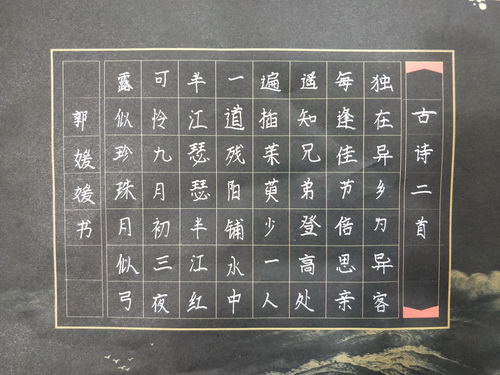 古诗二首
独在异乡为异客
每逢佳节倍思亲
遥知兄弟登高处
遍插茱萸少一人
一道残阳铺水中
半江瑟瑟半江红
可怜九月初三夜
露似珍珠月似弓
郭媛媛书